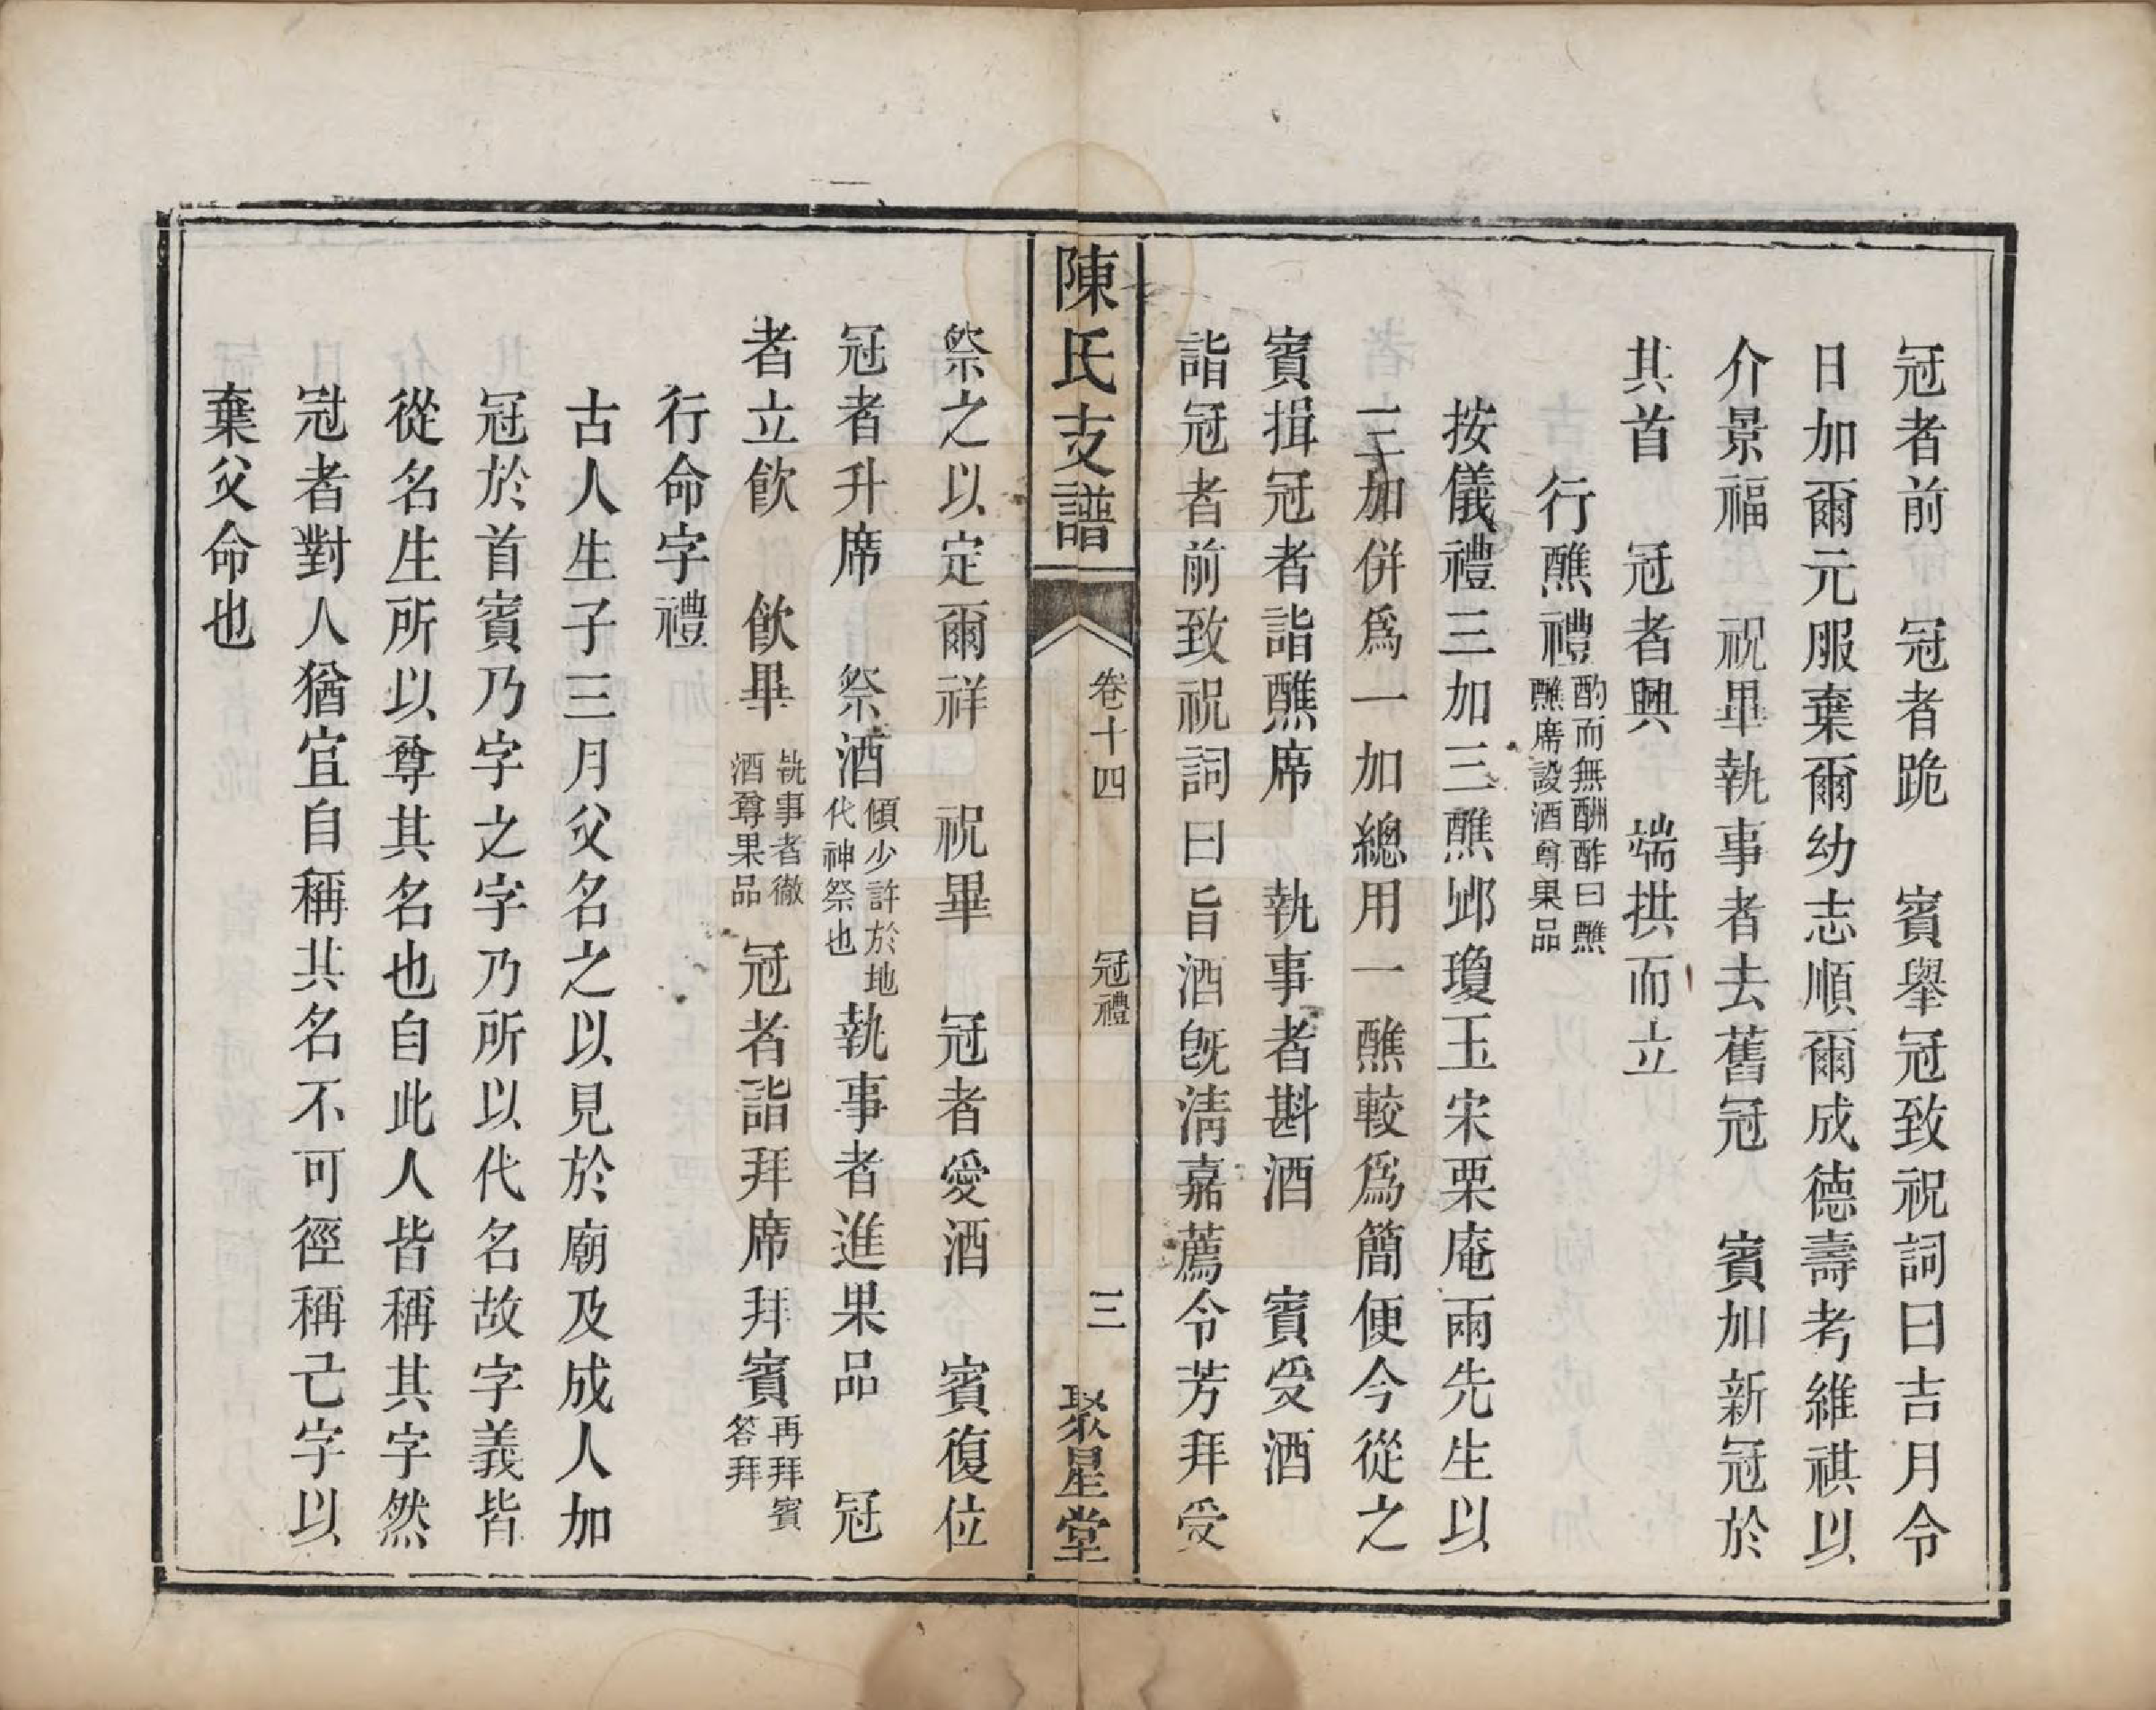 冠者前　冠者跪　賓舉冠致祝詞曰吉月令
日加爾元服棄爾幼志順爾成德壽考維祺以
介景福　祝畢執事者去舊冠　賓加新冠於
其首　冠者興　端拱而立
行醮禮酌而無酬酢曰醮醮席設酒尊果品
按儀禮三加三醮邱瓊玉宋栗庵兩先生以
三加併爲一加總用一醮較爲簡便今從之
賓揖冠者詣醮席　執事者斟酒　賓受酒
詣冠者前致祝詞曰旨酒旣淸嘉薦令芳拜受
陳氏支譜　卷十四　冠禮　三　聚星堂
祭之以定爾祥　祝畢　冠者愛酒　賓復位
冠者升席　祭酒傾少許於地代神祭也執事者進果品　冠
者立飮　飮畢執事者徹酒尊果品　冠者詣拜席拜賓再拜賓答拜
行命字禮
古人生子三月父名之以見於廟及成人加
冠於首賓乃字之字乃所以代名故字義皆
從名生所以尊其名也自此人皆稱其字然
冠者對人猶宜自稱其名不可徑稱己字以
棄父命也